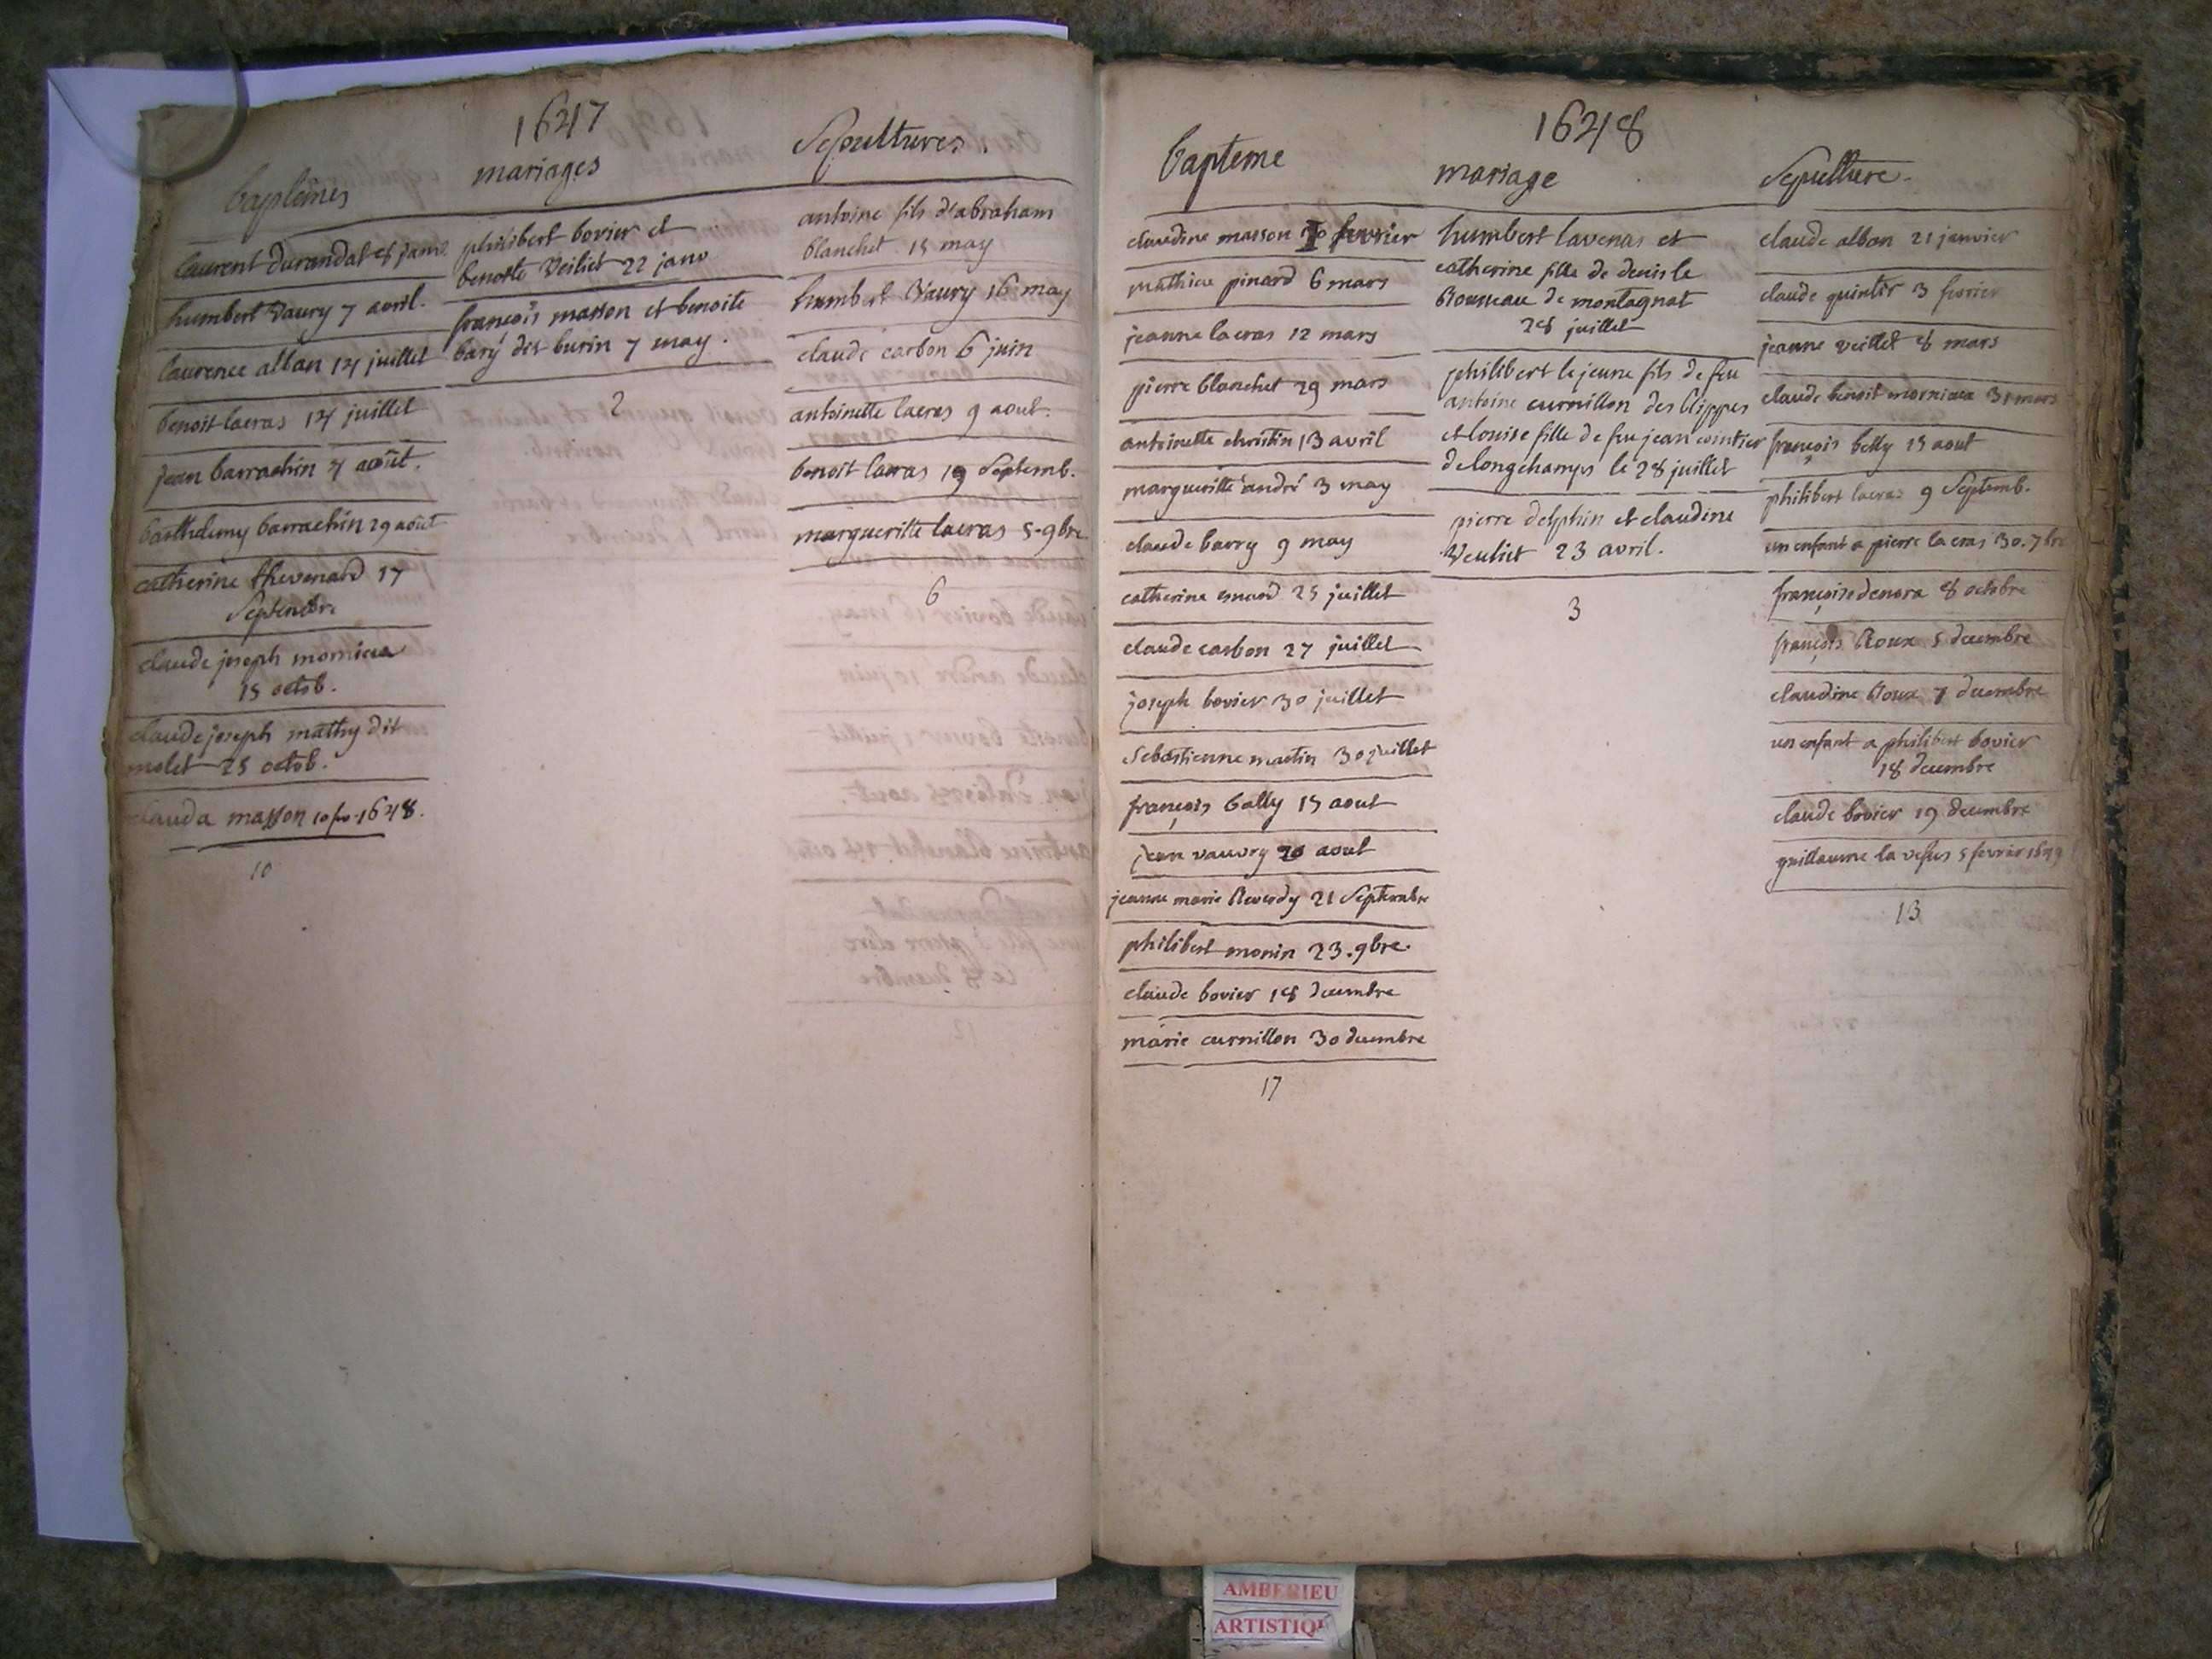 1647
baptêmes
laurent durandat 28 janv.
humbert Vaury 7 avril.
laurence alban 14 juillet
benoit lacras 14 juillet
jean barrachin 4 août.
barthelemy barrachin 29 août
catherine thevenard 17
Septembre
claude joseph mornieu
15 octob.
claude joseph mathy dit
molet 25 octob.
clauda masson 10 fev. 1648.
10
mariages
philibert bovier et
benoite Veiliet 22 janv
françois masson et benoite
bary des burin 7 may.
2
Sepultures.
antoine fils d'abraham
blanchet 15 may
humbert Vaury 16 may
claude carbon 6 juin
antoinette lacras 9 aout.
benoit lacras 19 Septemb.
margueritte lacras 5-9bre
6
1648
bapteme
claudine masson fevrier
mathieu pinard 6 mars
jeanne lacras 12 mars
pierre blanchet 29 mars
antoinette christin 13 avril
margueritte andré 3 may
claude barry 9 may
catherine 25 juillet
claude carbon 27 juillet
joseph bovier 30 juillet
Sebastienne martin 30 juillet
françois bally 15 aout
jean vauvry 20 aout
jeanne marie Reverdy 21 Septembre
philibert monin 23.9bre.
claude bovier 18 decembre
marie curnillon 30 decembre
17
mariage
humbert lavenas et
catherine fille de denis le
Rousseau de montagnat
28 juillet
philibert le jeune fils de feu
antoine curnillon des blippes
et louise fille de feu jean cointier
de longchamps le 28 juillet
pierre delphin et claudine
Veuliet 23 avril.
3
Sepulture.
claude alban 21 janvier
claude quintir 3 fevrier
jeanne veillet 8 mars
claude benoit mornieu 31 mars
françois belly 15 aout
philibert lacras 9 Septemb.
un enfant a pierre lacras 30.7bre
françoise denora 8 octobre
françois Roux 5 decembre
claudine Roux 7 decembre
un enfant a philibert bovier
18 decembre
claude bovier 19 decembre
guillaume la 5 fevrier 1649
13
AMBERIEU
ARTISTIQU